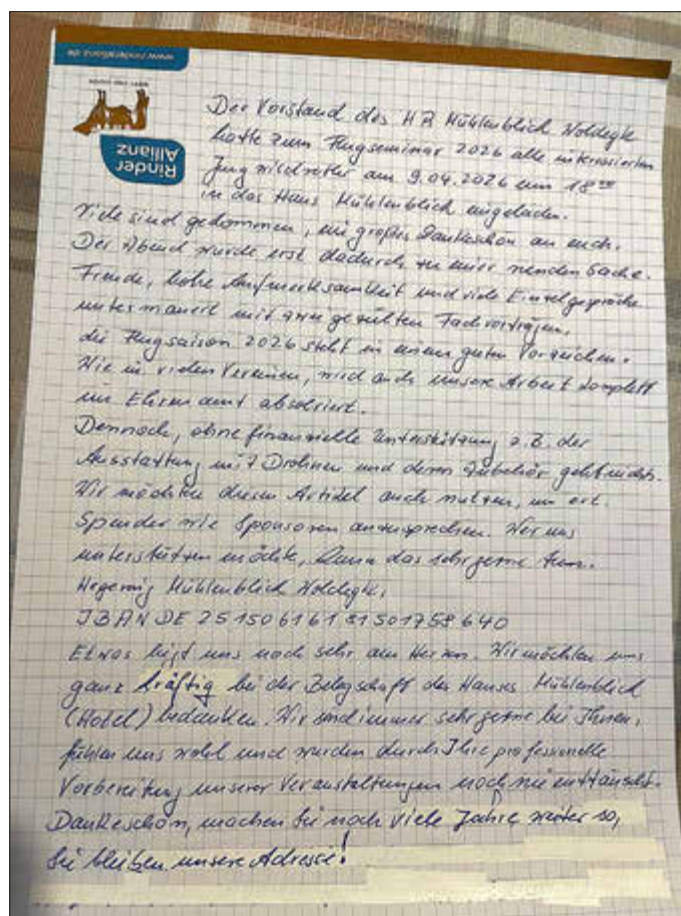 www.rinderallianz.de
Rinder
Allianz
Der Vorstand des HR Mühlenblick Woldegk
hatte zum Flugseminar 2026 alle interessierten
Jungwildretter am 9.04.2026 um 18⁰⁰
in das Haus Mühlenblick eingeladen.
Viele sind gekommen, ein großes Dankeschön an euch.
Der Abend wurde erst dadurch zu einer runden Sache.
Freude, hohe Aufmerksamkeit und viele Einzelgespräche
untermauert mit gezielten Fachvorträgen,
die Flugsaison 2026 steht in einem guten Vorzeichen.
Wie in vielen Vereinen, wird auch unsere Arbeit komplett
im Ehrenamt absolviert.
Dennoch, ohne finanzielle Unterstützung z.B. der
Ausstattung mit Drohnen und deren Zubehör geht nichts.
Wir möchten diesen Artikel auch nutzen, um evt.
Spender wie Sponsoren anzusprechen. Wer uns
unterstützen möchte, kann das sehr gerne tun.
Hegering Mühlenblick Woldegk,
IBAN DE 25150616181501758640
Etwas liegt uns noch sehr am Herzen. Wir möchten uns
ganz kräftig bei der Belegschaft des Hauses Mühlenblick
(Hotel) bedanken. Wir sind immer sehr gerne bei Ihnen,
fühlen uns wohl und wurden durch Ihre professionelle
Vorbereitung unserer Veranstaltungen noch nie enttäuscht.
Dankeschön, machen Sie noch viele Jahre weiter so,
Sie bleiben unsere Adresse!